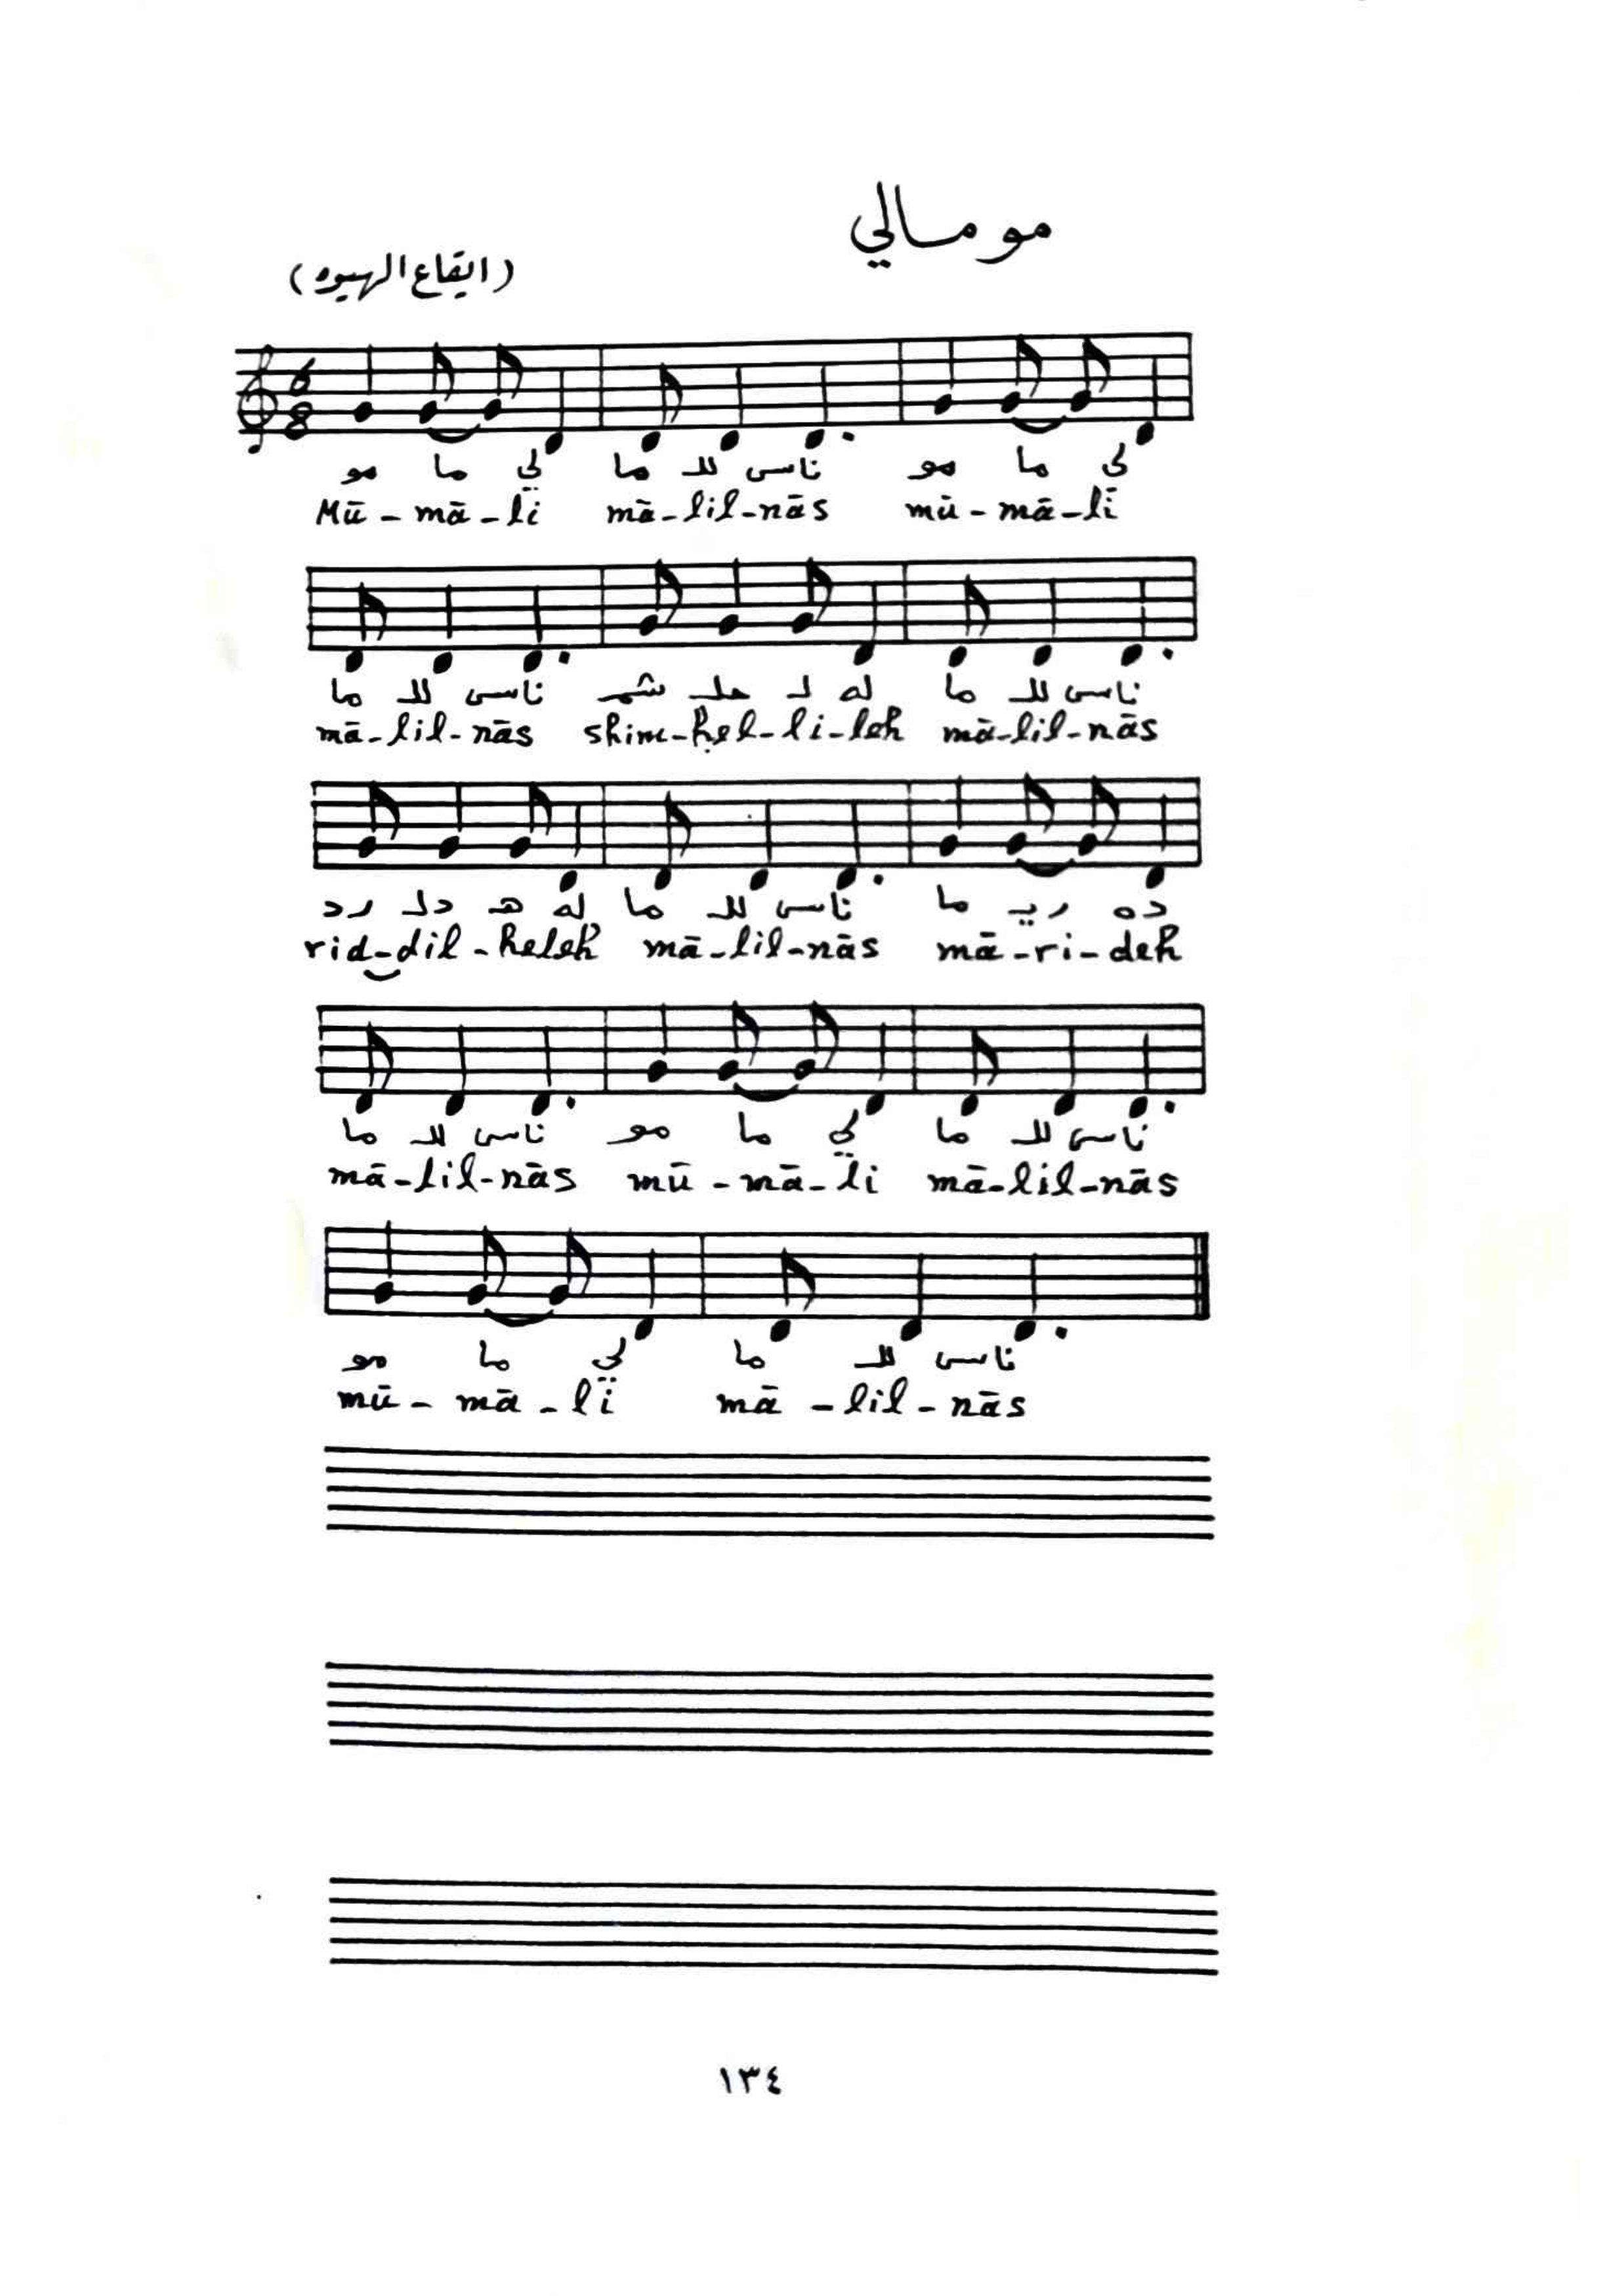 مو مالي
(ايقاع الهيوه)
6
8
مو ما لي ما لل ناس مو ما لي
Mū - mā - lī mā - lil - nās mū - mā - lī
ما لل ناس شمـ حلـ لـ له ما لل ناس
mā - lil - nās shim - ḥel - li - leh mā - lil - nās
رد دلـ هـ له ما لل ناس ما ريـ ده
rid - dil - heleh mā - lil - nās mā - ri - deh
ما لل ناس مو ما لي ما لل ناس
mā - lil - nās mū - mā - li mā - lil - nās
مو ما لي ما لل ناس
mū - mā - lï mā - lil - nās
١٣٤